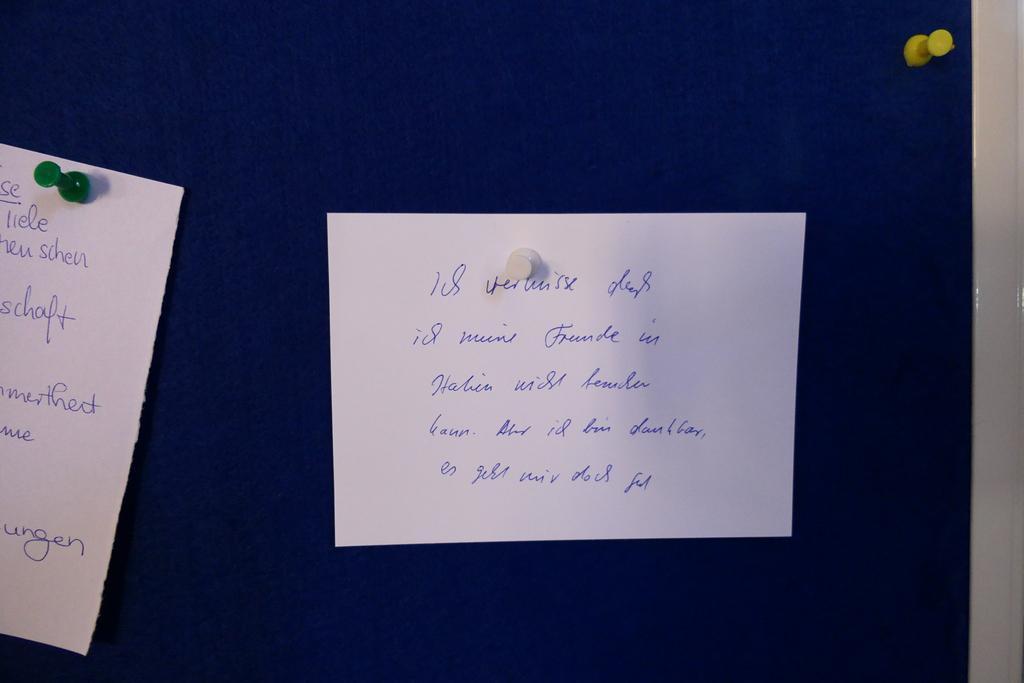 se
liele
hen schen
schaft
mertheit
me
ungen
Ich vermisse daß
ich meine Freunde in
Italien nicht besuchen
kann. Aber ich bin dankbar,
es geht mir doch gut